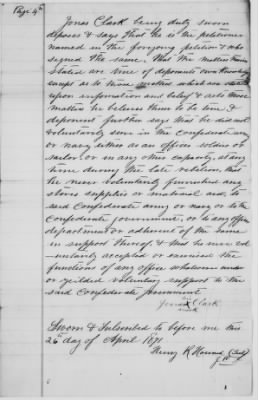 Page 4th
Jonas Clark being duly sworn
deposes & says that he is the petitioner
named in the foregoing petition & who
signed the same. That the matters therein
stated are true of deponents own knowledge
except as to those matters which are stated
upon information and belief & as to those
matters he believes them to be true &
deponent further says that he did not
voluntarily serve in the Confederate army
or navy either as an officer soldier or
sailor or in any other capacity, at any
time during the late rebellion, that
he never voluntarily furnished any
stores supplies or material aid to
said Confederate army or navy or to the
Confederate government, or to any officer
department or adherent of the same
in support thereof, & that he never vol
-untarily accepted or exercised the
functions of any office whatsoever under
or yielded voluntary support to the
said Confederate government
his
Jonas x Clark
mark
Sworn & Subscribed to before me this
26th day of April 1871
Henry K